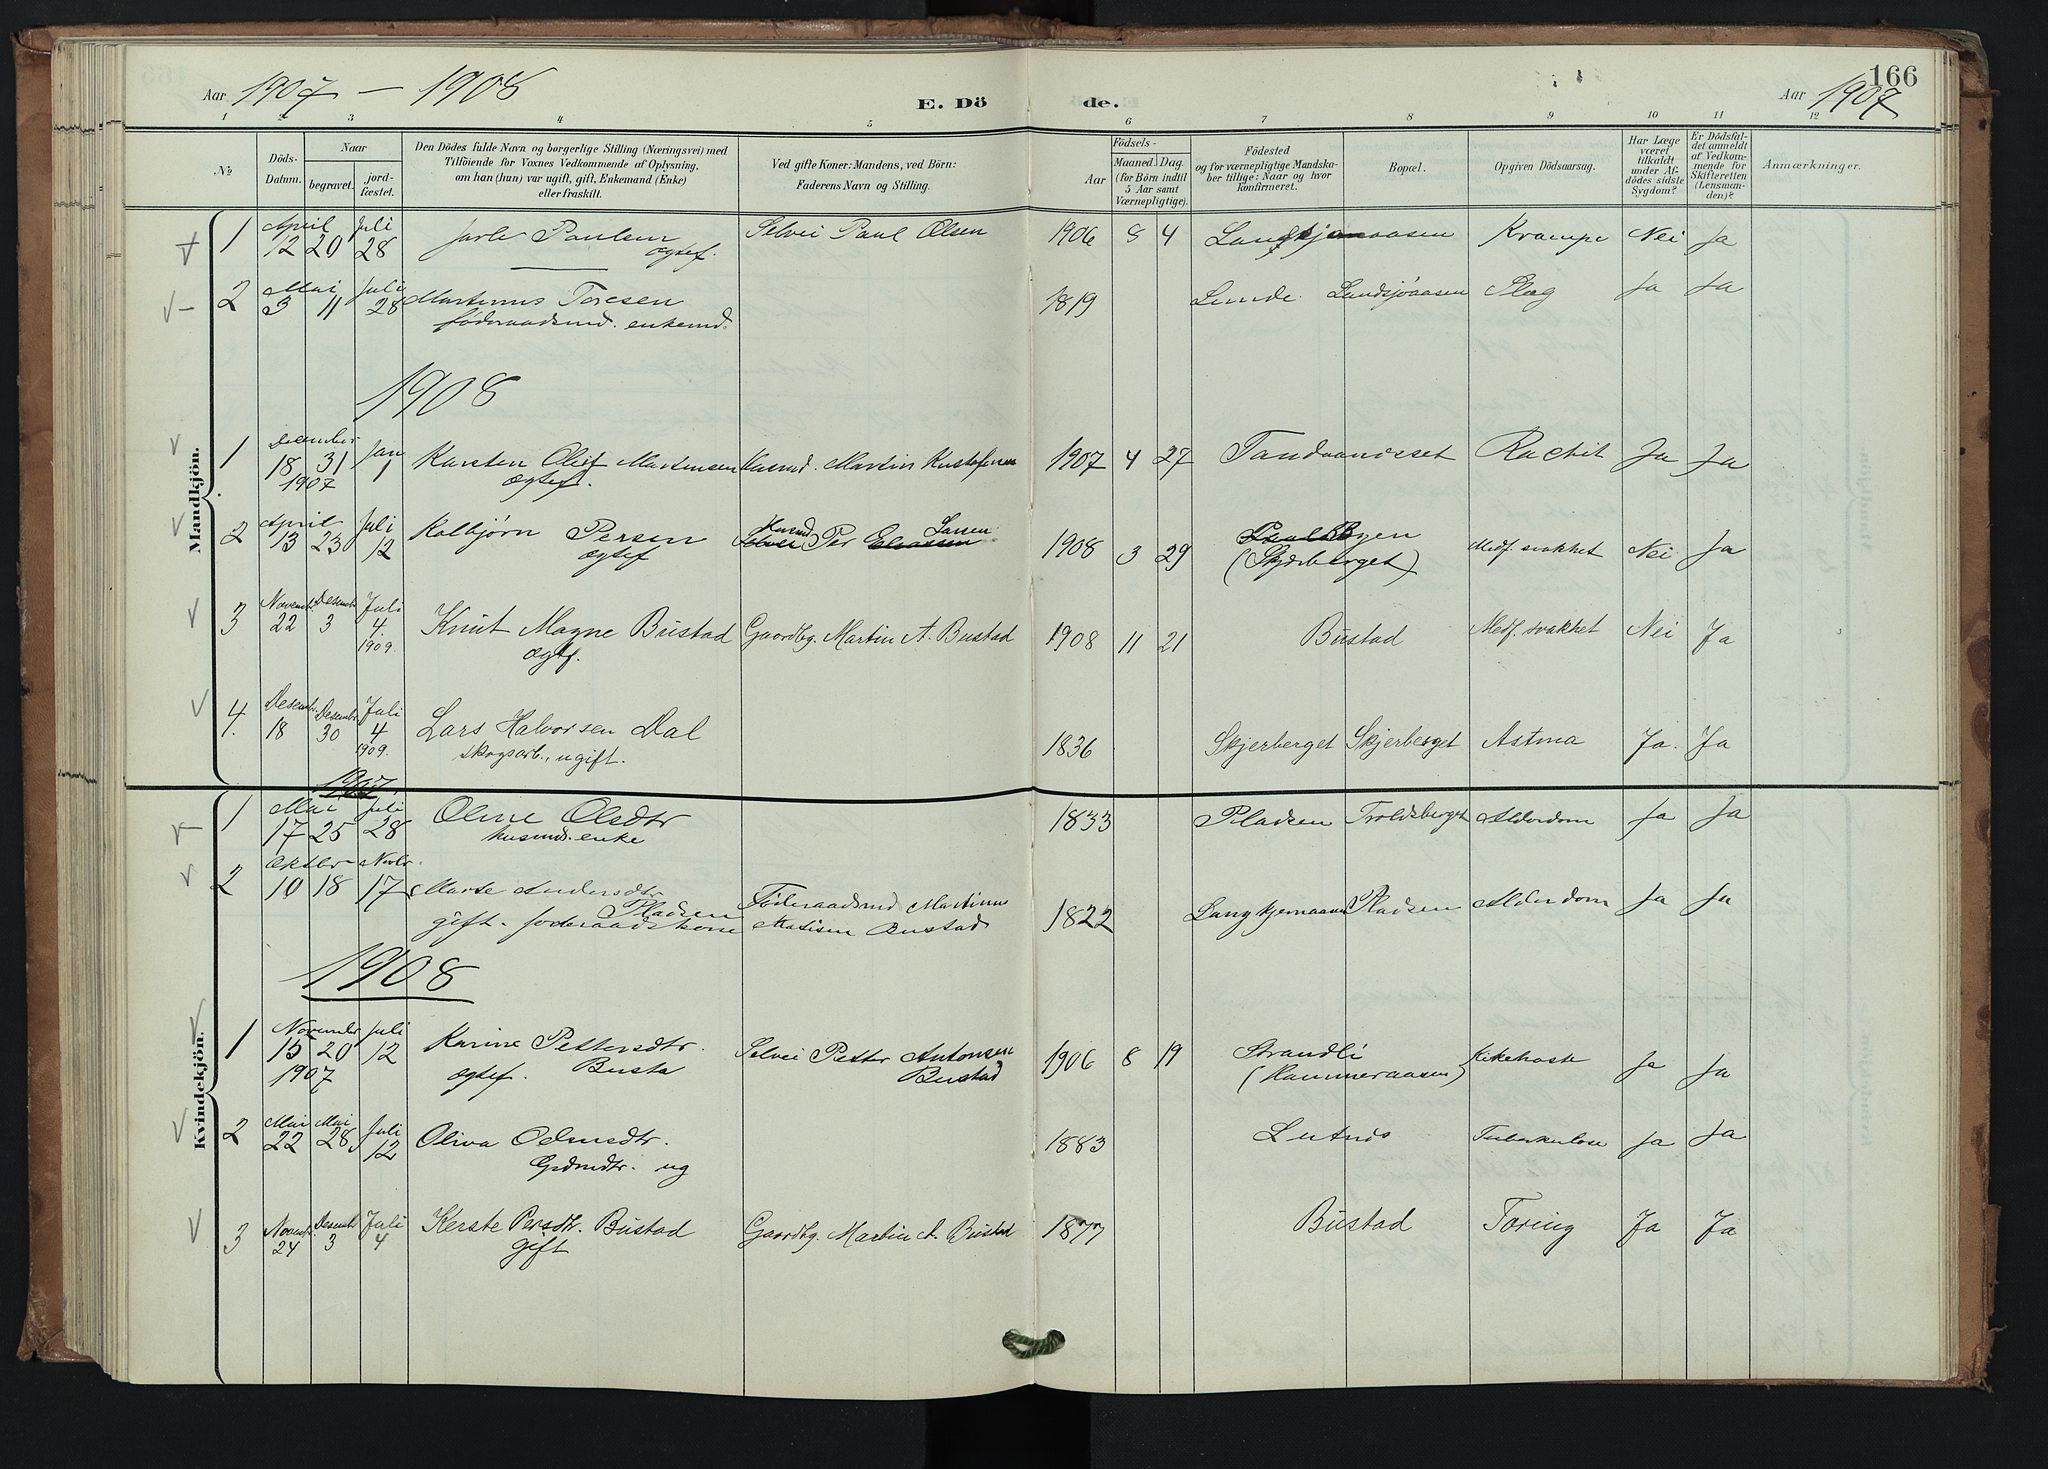 166
Aar 1907 — 1908
E. Dö de.
Aar 1907
1 2 3 4 5 6 7 8 9 10 11 12
№
Döds-Datum.
Naar
begravet.
jord-fæstet.
Den Dödes fulde Navn og borgerlige Stilling (Næringsvei) med
Tilföiende for Voxnes Vedkommende af Oplysning,
om han (hun) var ugift, gift, Enkemand (Enke)
eller fraskilt.
Ved gifte Koner: Mandens, ved Börn:
Faderens Navn og Stilling.
Födsels-
Aar
Maaned. Dag.
(for Börn indtil
5 Aar samt
Værnepligtige).
Födested
og for værnepligtige Mandska-
ber tillige: Naar og hvor
konfirmeret.
Bopæl.
Opgiven Dödsaarsag.
Har Læge
været
tilkaldt
under Af-
dödes sidste
Sygdom?
Er Dödsfal-
det anmeldt
af Vedkom-
mende for
Skifteretten
(Lensman-
den)?
Anmærkninger.
Mandkjön.
1 April 12 20 Juli 28 Jarle Paulsen Selvei Paul Olsen 1906 8 4 Langkjernaasen Krampe Nei Ja
ægtef.
2 Mai 3 11 Juli 28 Martinus Toresen 1819 Lunde Landsjöaasen Slag Ja Ja
föderaadsmd. enkemd.
1908
1 December 18 31 Jan 1 Karsten Olief Martinsen Husmd. Martin Kristofersen 1907 4 27 Tandvandsset Rachit Ja Ja
1907 ægtef.
2 April 13 23 Juli 12 Kolbjørn Persen Husmd Per Larsen 1908 3 29 Medf. svakhet Nei Ja
ægtef (Skjerberget)
3 Novemb 22 Desemb 3 Juli 4 1909. Knut Magne Bustad Gaardbg. Martin A. Bustad 1908 11 21 Bustad Medf. svakhet Nei Ja
ægtf.
4. Desembr 18 Desembr 30 Juli 4 1909. Lars Halvorsen Dal 1836 Skjerberget Skjerberget Astma Ja. Ja
skogsarb., ugift.
Kvindekjön.
1907.
1 Mai 17 25 Juli 28 Oline Olsdtr 1833 Pladsen Troldsberget Alderdom Ja Ja
husmds. enke
2 Oktbr 10 18 Novbr. 17 Marte Andersdtr Föderaadsmd Martinus 1822 Langkjernaasen Pladsen Alderdom Ja Ja
Pladsen
gift. föderaadskone Matisen Bustad
1908
1 November 15 20 Juli 12 Karine Pettersdtr. Selvei Petter Antonsen 1906 8 19 Strandli Kikehoste Ja Ja
1907 ægtef. Busta Bustad (Hammeraasen)
2 Mai 22 Mai 28 Juli 12 Oliva Odmsdtr. 1883 Lutnes Tuberkulose Ja Ja
Grdmdtr. ug
3 Novembr. 24 Desembr 3 Juli 4 Kerste Persdtr. Bustad Gaardbg. Martin A. Bustad 1877 Bustad Toring Ja Ja
gift